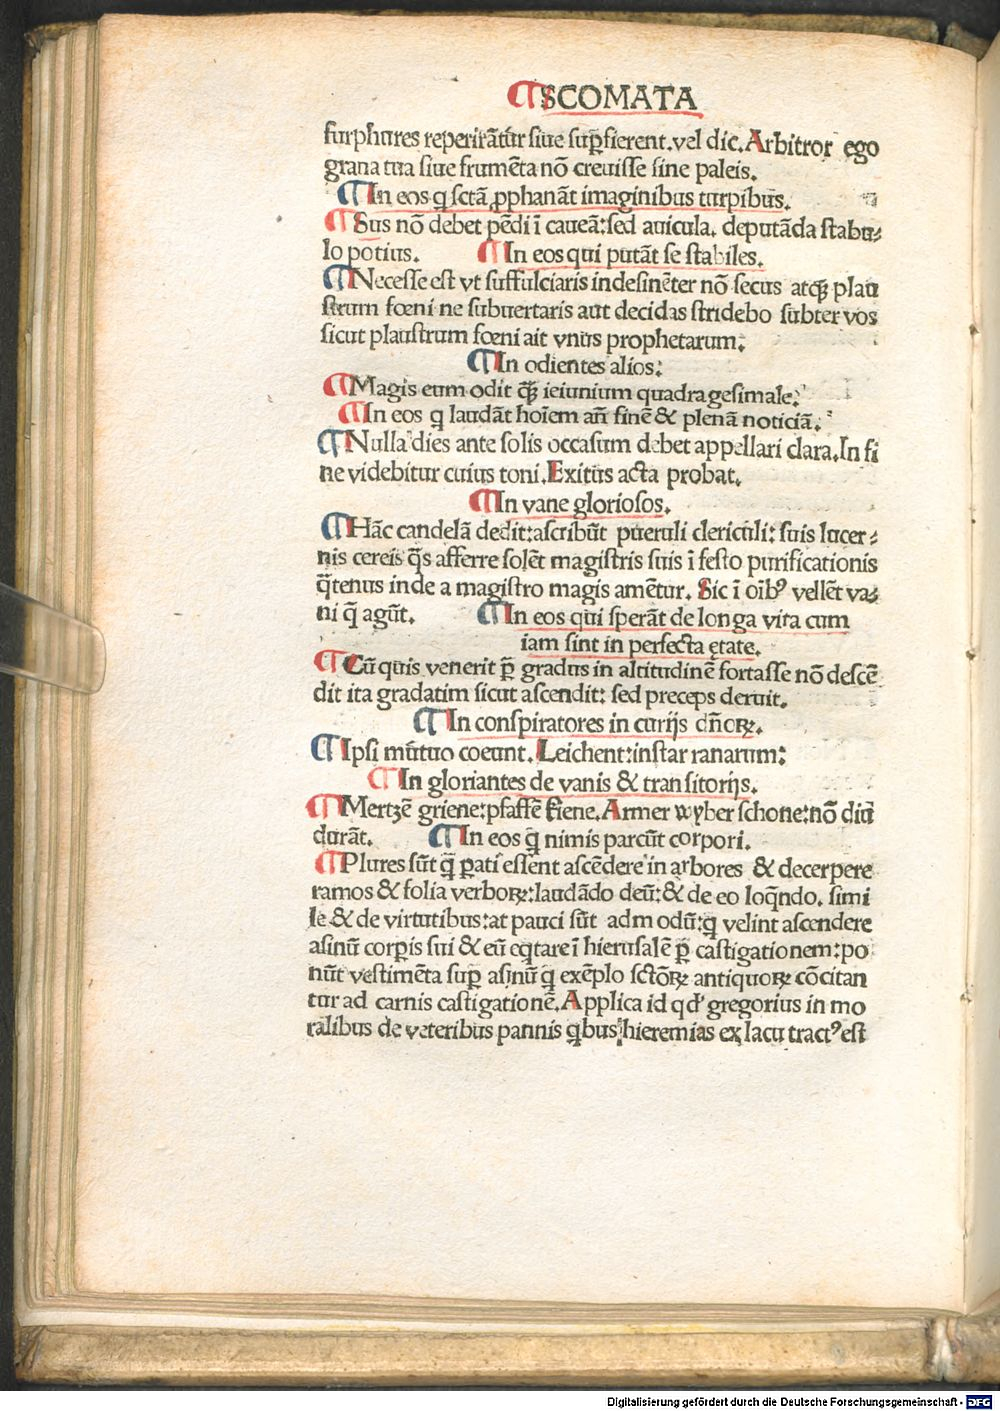 ¶ SCOMATA
furphures reperirãtur siue suꝑfierent. vel dic. Arbitror ego
grana tua siue frumẽta nõ creuisse sine paleis.
¶ In eos q sctã ꝓphanãt imaginibus turpibus.
¶ Sus nõ debet pẽdi ĩ caueã: sed auicula. deputãda stabu⸗
lo potius. ¶ In eos qui putãt se stabiles.
¶ Necesse est vt suffulciaris indesinẽter nõ secus atqꝫ plau
strum fœni ne subuertaris aut decidas stridebo subter vos
sicut plaustrum fœni ait vnus prophetarum.
¶ In odientes alios:
¶ Magis eum odit q̃ꝫ ieiunium quadragesimale.
¶ In eos q laudãt hoĩem añ finẽ & plenã noticiã.
¶ Nulla dies ante solis occasum debet appellari clara. In fi
ne videbitur cuius toni. Exitus acta probat.
¶ In vane gloriosos.
¶ Hãc candelã dedit: ascribũt pueruli clericuli: suis lucer⸗
nis cereis q̃s afferre solẽt magistris suis ĩ festo purificationis
q̃tenus inde a magistro magis amẽtur. Sic ĩ oĩbꝰ vellẽt va⸗
ni q̃ agũt. ¶ In eos qui sperãt de longa vita cum
iam sint in perfecta ętate.
¶ Cũ quis venerit ꝑ gradus in altitudinẽ fortasse nõ descẽ
dit ita gradatim sicut ascendit: sed preceps deruit.
¶ In conspiratores in curijs dñoꝝ.
¶ Ipsi mũtuo coeunt. Leichent: instar ranarum:
¶ In gloriantes de vanis & transitorijs.
¶ Mertzẽ griene: pfaffẽ kiene. Armer wyber schone: nõ diũ
durãt. ¶ In eos q̃ nimis parcũt corpori.
¶ Plures sũt q̃ ꝑati essent ascẽdere in arbores & decerpere
ramos & folia verboꝝ: laudãdo deũ: & de eo loq̃ndo. simi
le & de virtutibus: at pauci sũt admodũ: q velint ascendere
asinũ corꝑis sui & eũ eq̃tare ĩ hierusalẽ ꝑ castigationem: po
nũt vestimẽta suꝑ asinũ q̃ exẽplo sctõꝝ antiquoꝝ cõcitan
tur ad carnis castigationẽ. Applica id qd' gregorius in mo
ralibus de veteribus pannis q̃bus hieremias ex lacu tractꝰ est
Digitalisierung gefördert durch die Deutsche Forschungsgemeinschaft - DFG